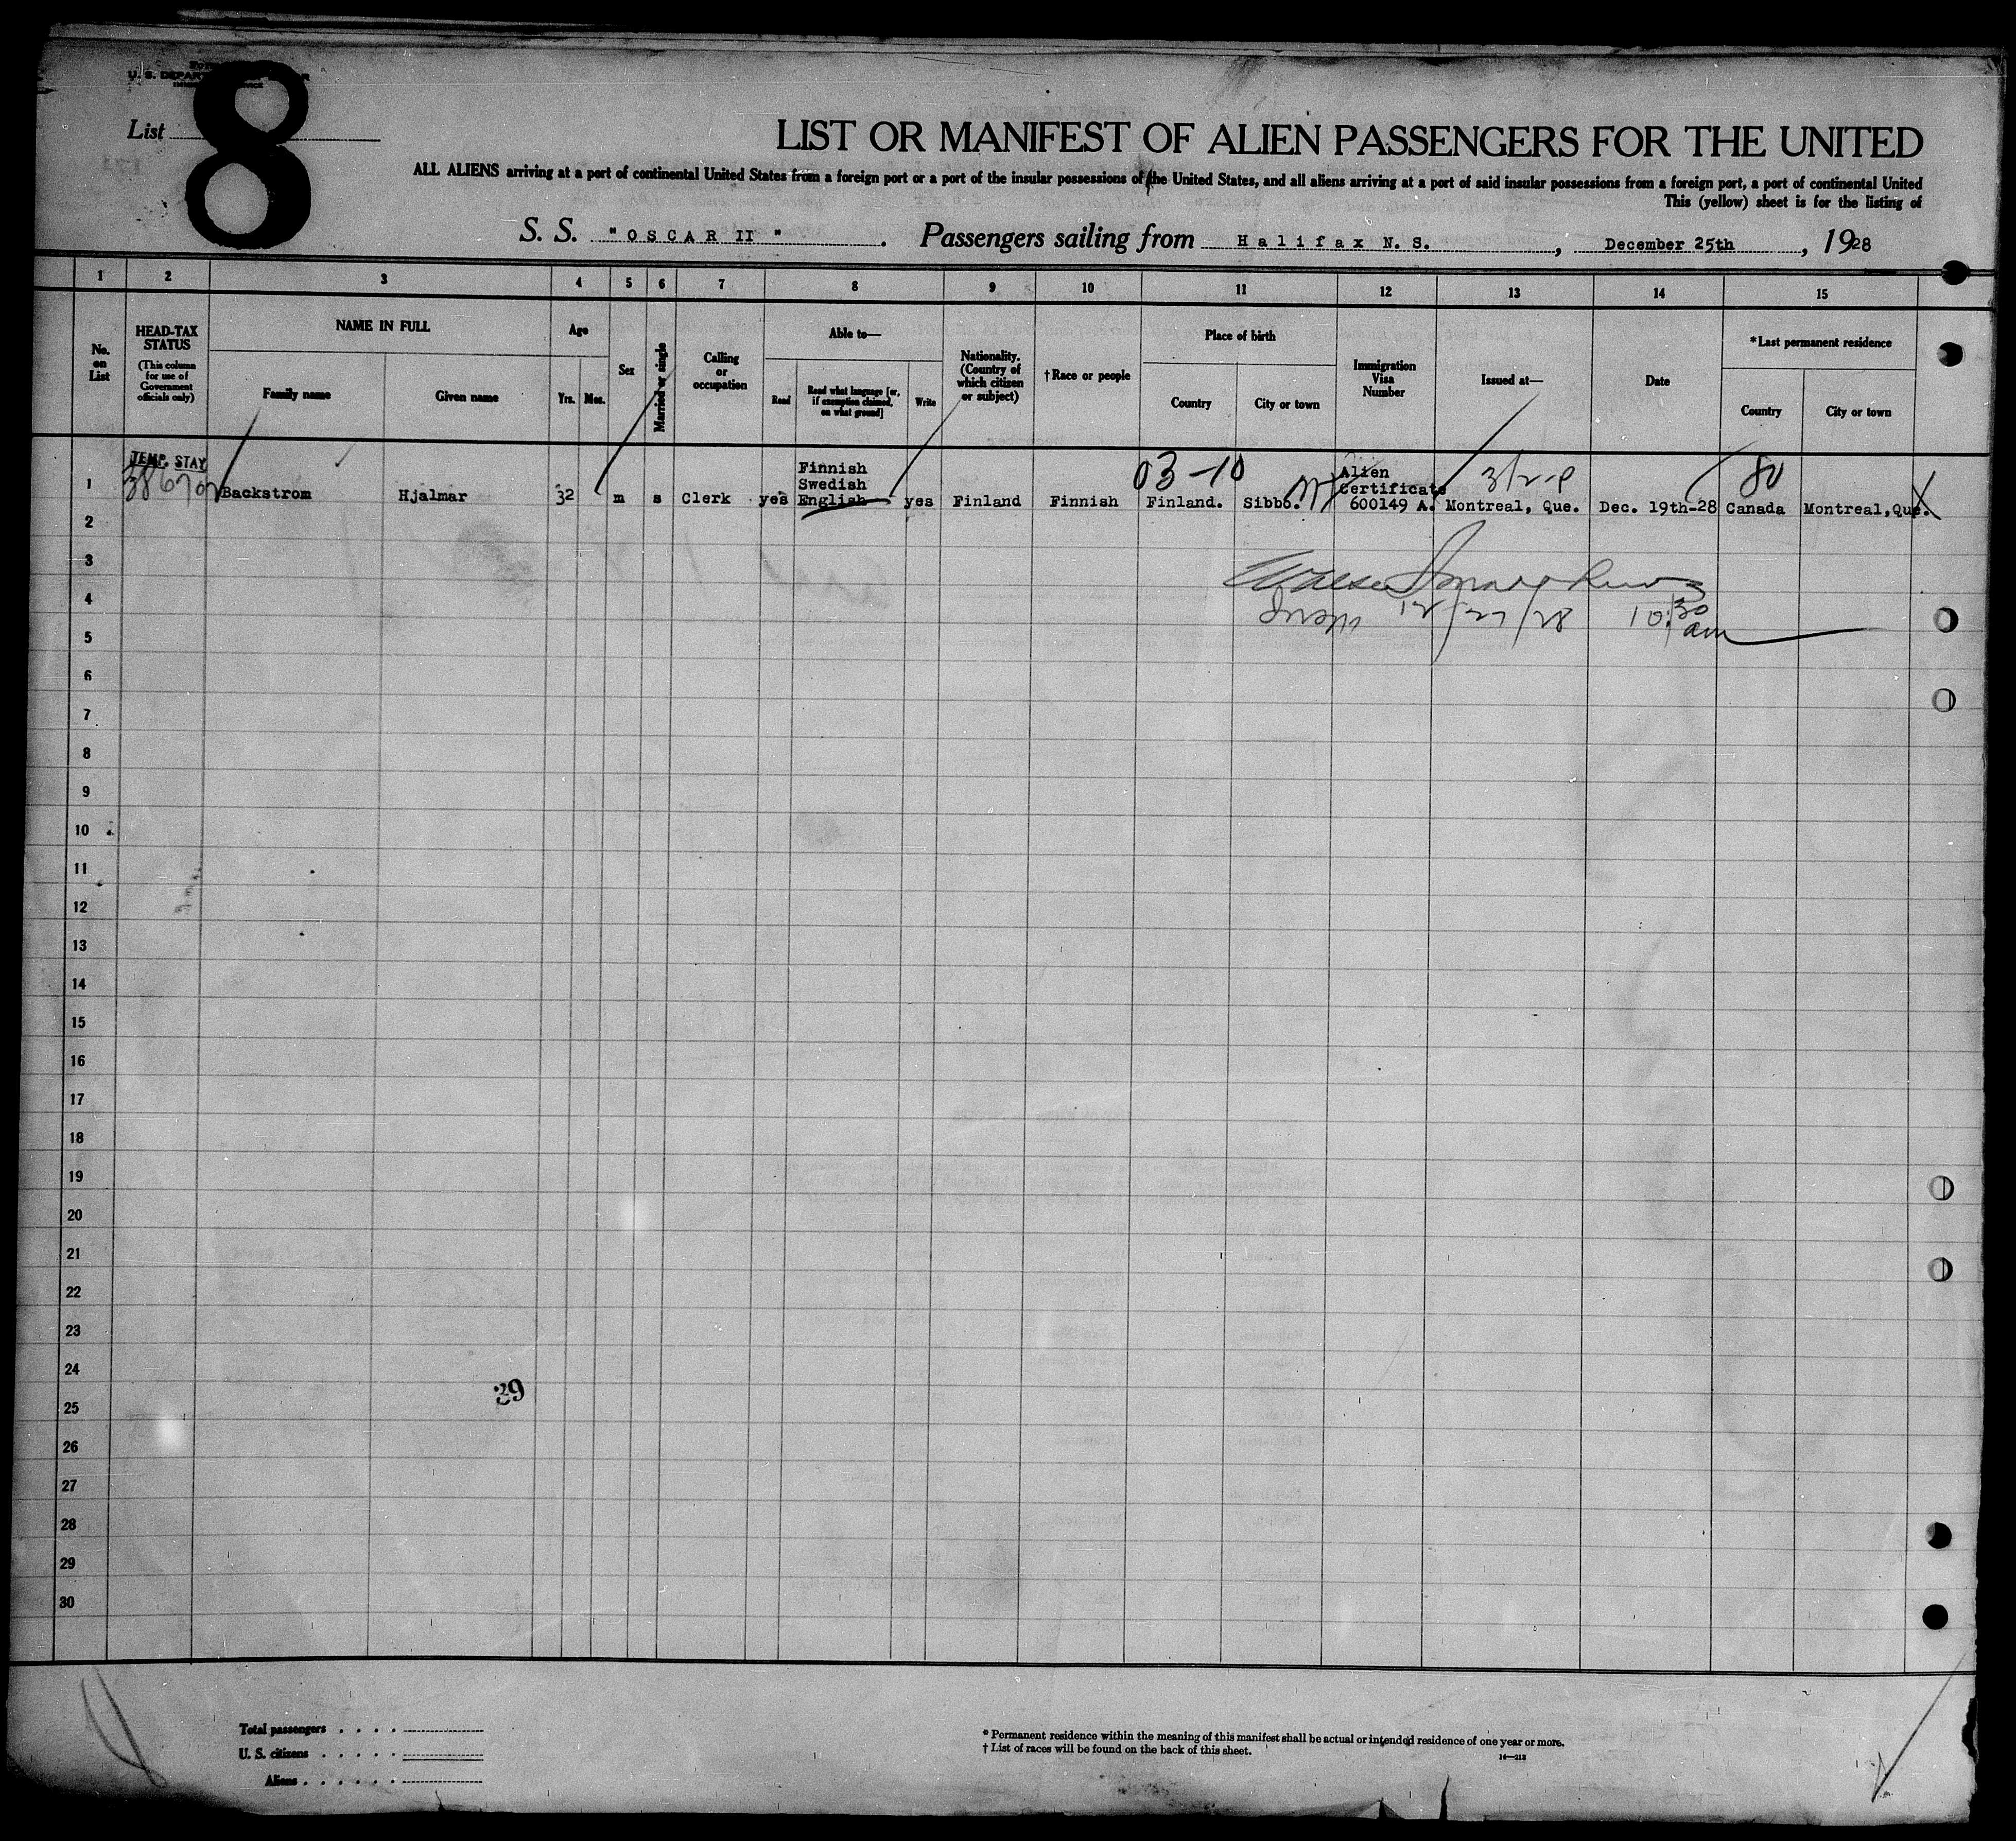 U. S. DEPAR
List
8
LIST OR MANIFEST OF ALIEN PASSENGERS FOR THE UNITED
ALL ALIENS arriving at a port of continental United States from a foreign port or a port of the insular possessions of the United States, and all aliens arriving at a port of said insular possessions from a foreign port, a port of continental United
This (yellow) sheet is for the listing of
S. S. "OSCAR II". Passengers sailing from Halifax N. S., December 25th, 1928
1 2 3 4 5 6 7 8 9 10 11 12 13 14 15
No. on List
HEAD-TAX STATUS
(This column for use of Government officials only)
NAME IN FULL
Family name
Given name
Age
Yrs. Mos.
Sex
Married or single
Calling or occupation
Able to—
Read
Read what language [or, if exemption claimed, on what ground]
Write
Nationality. (Country of which citizen or subject)
†Race or people
Place of birth
Country
City or town
Immigration Visa Number
Issued at—
Date
*Last permanent residence
Country
City or town
TEMP. STAY
03-10
80
1 Backstrom Hjalmar 32 m s Clerk yes Finnish Swedish English yes Finland Finnish Finland. Sibbo. Alien Certificate 600149 A. Montreal, Que. Dec. 19th-28 Canada Montreal, Que.
2
3
4
12/27/28 10:30 am
5
6
7
8
9
10
11
12
13
14
15
16
17
18
19
20
21
22
23
24
39
25
26
27
28
29
30
Total passengers . . . .
U. S. citizens . . . . .
Aliens . . . . . .
* Permanent residence within the meaning of this manifest shall be actual or intended residence of one year or more.
† List of races will be found on the back of this sheet.
14—213